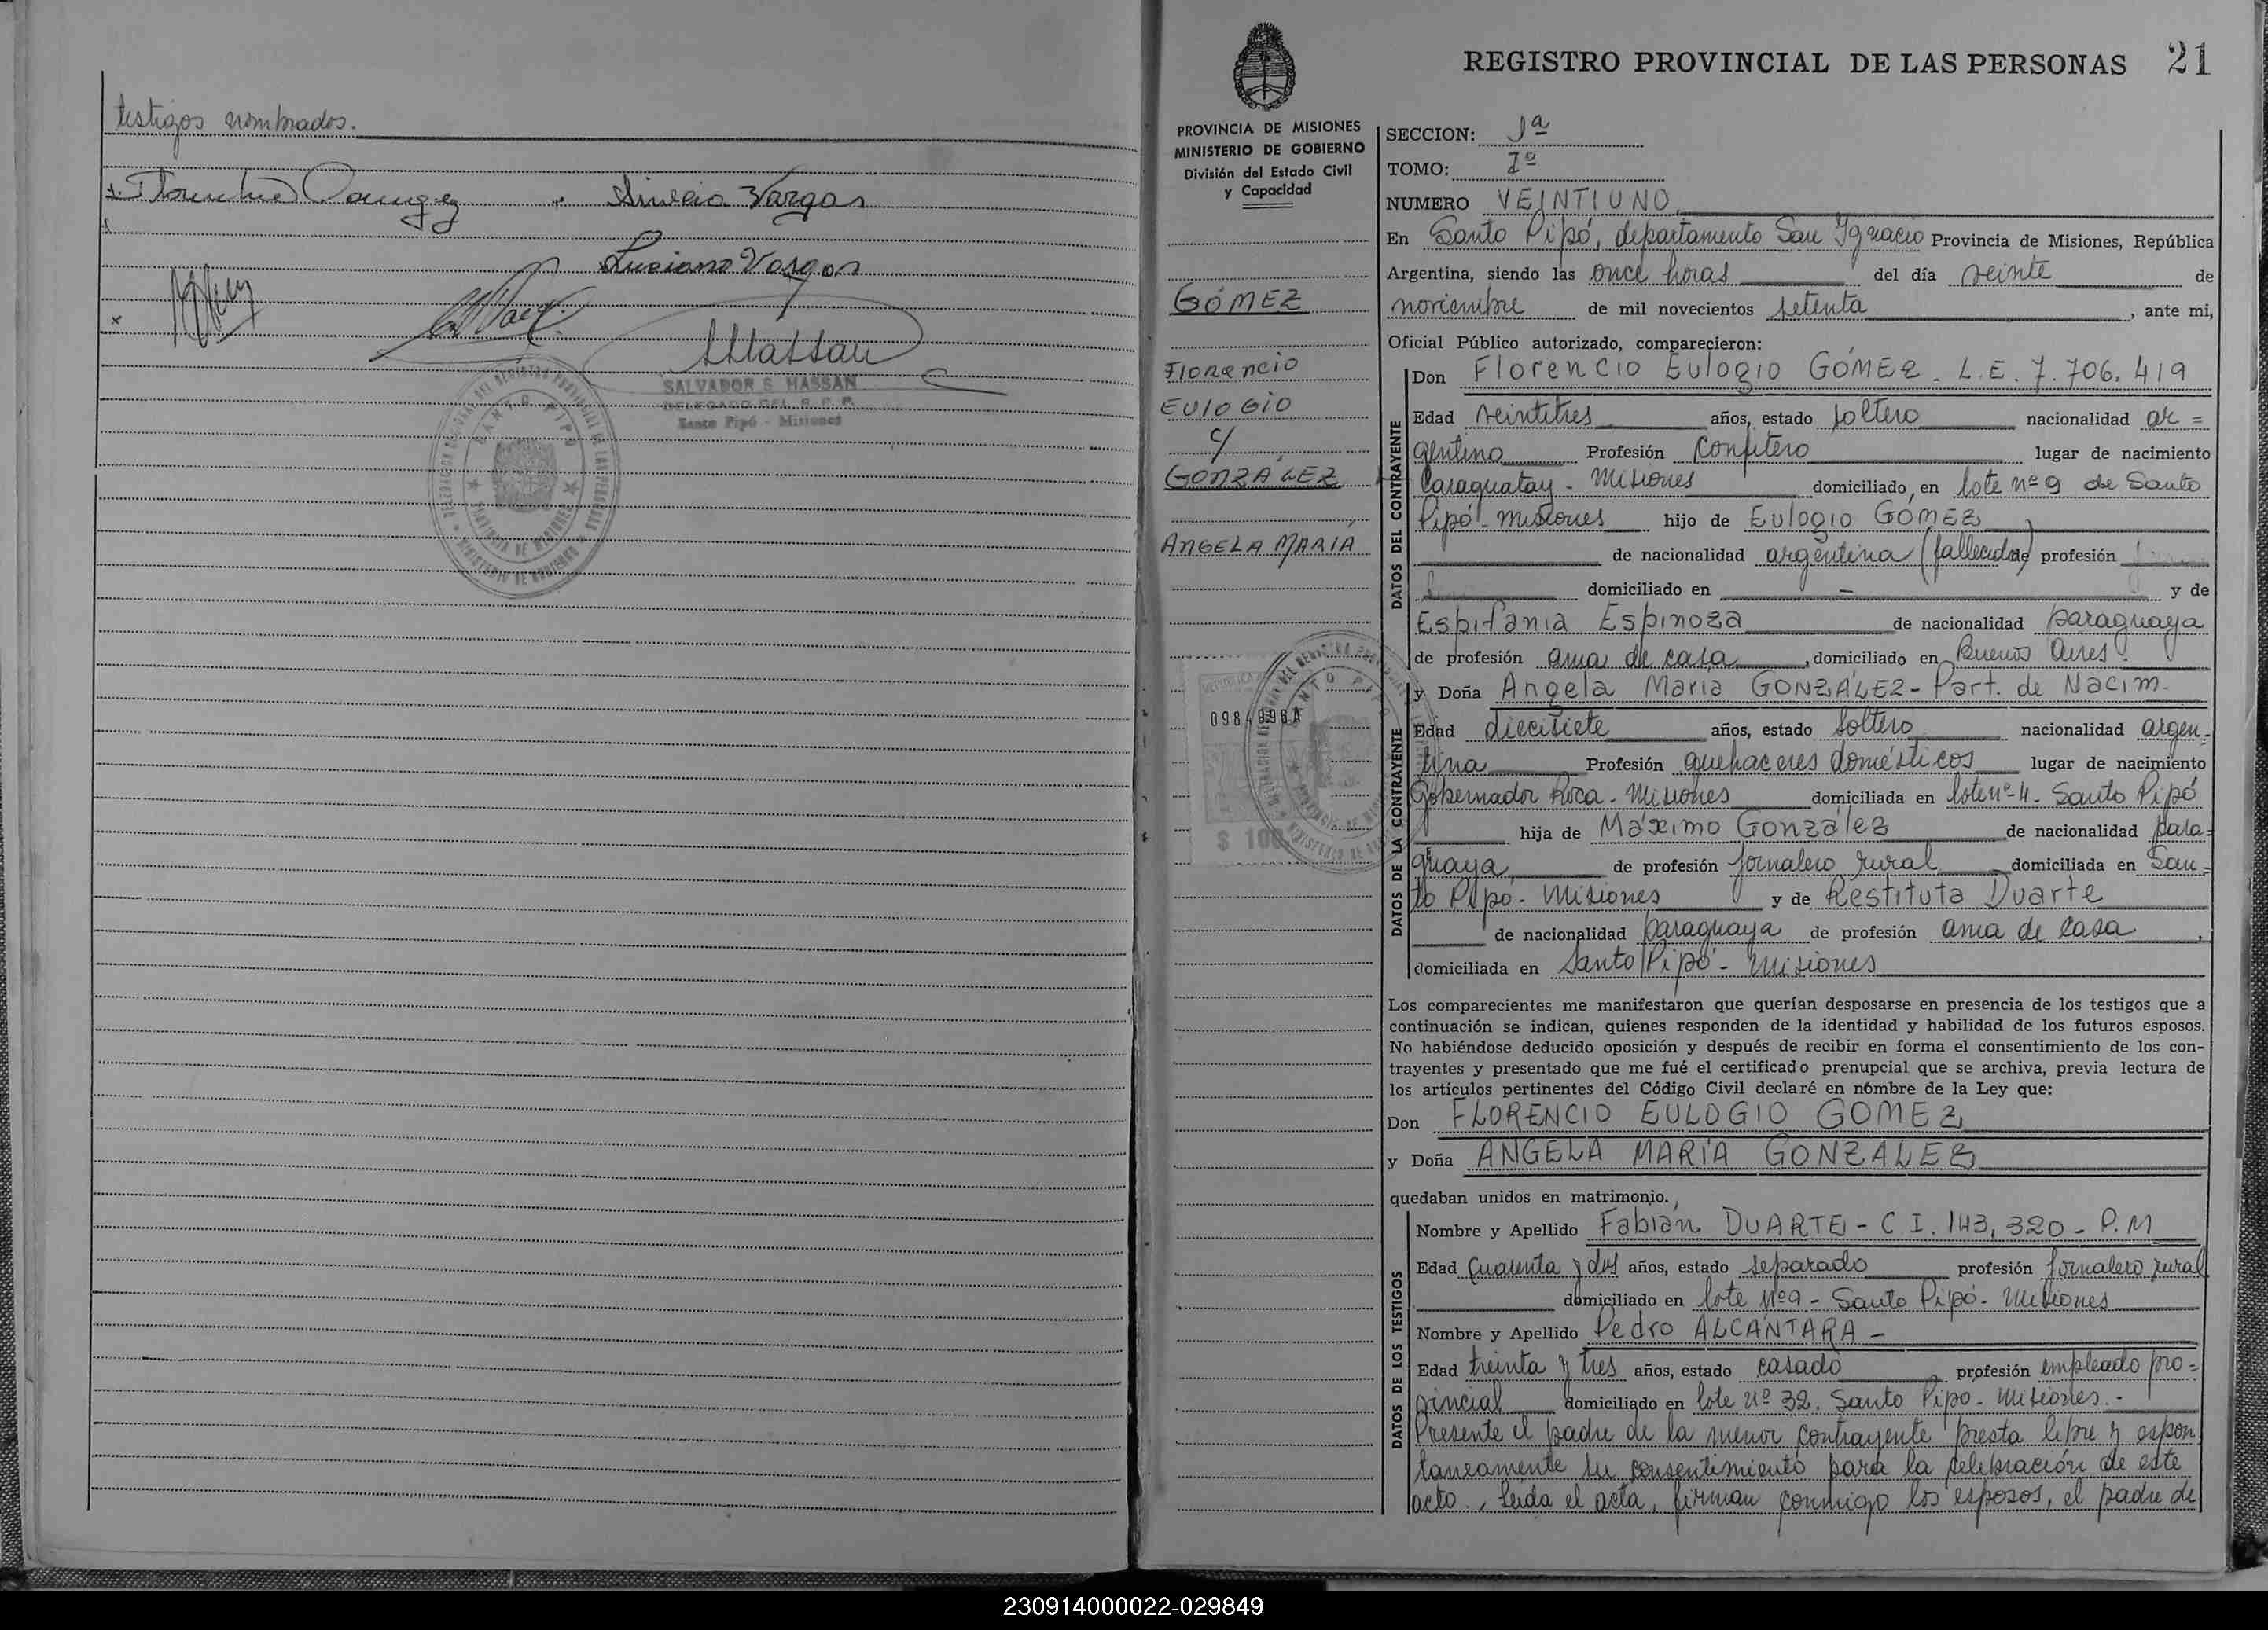 testigos nombrados.
Sinecia Vargas
Luciano Vargas
SALVADOR S. HASSAN
DELEGADO DEL R. P. P.
Santo Pipó - Misiones
SANTO PIPO
REGISTRO PROVINCIAL DE LAS PERSONAS 21
PROVINCIA DE MISIONES
MINISTERIO DE GOBIERNO
División del Estado Civil
y Capacidad
GÓMEZ
Florencio
EULOGIO
c/
GONZÁLEZ
ANGELA MARÍA
0984096A
$ 100
SECCION: 1ª
TOMO: 1º
NUMERO VEINTIUNO
En Santo Pipó, departamento San Ignacio Provincia de Misiones, República
Argentina, siendo las once horas del día veinte de
noviembre de mil novecientos setenta, ante mi,
Oficial Público autorizado, comparecieron:
DATOS DEL CONTRAYENTE
Don Florencio Eulogio GÓMEZ - L.E. 7.706.419
Edad veintitres años, estado soltero nacionalidad ar=
gentina Profesión confitero lugar de nacimiento
Caraguatay - Misiones domiciliado en lote nº 9 de Santo
Pipó - Misiones hijo de Eulogio GÓMEZ
de nacionalidad argentina (fallecido) profesión
domiciliado en - y de
Espifania Espinoza de nacionalidad paraguaya
de profesión ama de casa, domiciliado en Buenos Aires.
DATOS DE LA CONTRAYENTE
y Doña Angela Maria GONZÁLEZ - Part. de Nacim.
Edad diecisiete años, estado soltero nacionalidad argen-
tina Profesión quehaceres domésticos lugar de nacimiento
Gobernador Roca - Misiones domiciliada en lote nº 4. Santo Pipó
hija de Máximo González de nacionalidad para=
guaya de profesión jornalero rural domiciliada en San=
to Pipó - Misiones y de Restituta Duarte
de nacionalidad paraguaya de profesión ama de casa,
domiciliada en Santo Pipó - Misiones
Los comparecientes me manifestaron que querían desposarse en presencia de los testigos que a
continuación se indican, quienes responden de la identidad y habilidad de los futuros esposos.
No habiéndose deducido oposición y después de recibir en forma el consentimiento de los con-
trayentes y presentado que me fué el certificado prenupcial que se archiva, previa lectura de
los artículos pertinentes del Código Civil declaré en nombre de la Ley que:
Don FLORENCIO EULOGIO GOMEZ
y Doña ANGELA MARÍA GONZALEZ
quedaban unidos en matrimonio.
DATOS DE LOS TESTIGOS
Nombre y Apellido Fabián DUARTE - C I. 143,320 - P.M
Edad cuarenta y dos años, estado separado profesión jornalero rural
domiciliado en lote Nº 9 - Santo Pipó - Misiones
Nombre y Apellido Pedro ALCÁNTARA -
Edad treinta y tres años, estado casado profesión empleado pro=
vincial domiciliado en lote Nº 32. Santo Pipo - Misiones. -
Presente el padre de la menor contrayente presta libre y espon
taneamente su consentimiento para la celebración de este
acto., Leída el acta, firman conmigo los esposos, el padre de
230914000022-029849